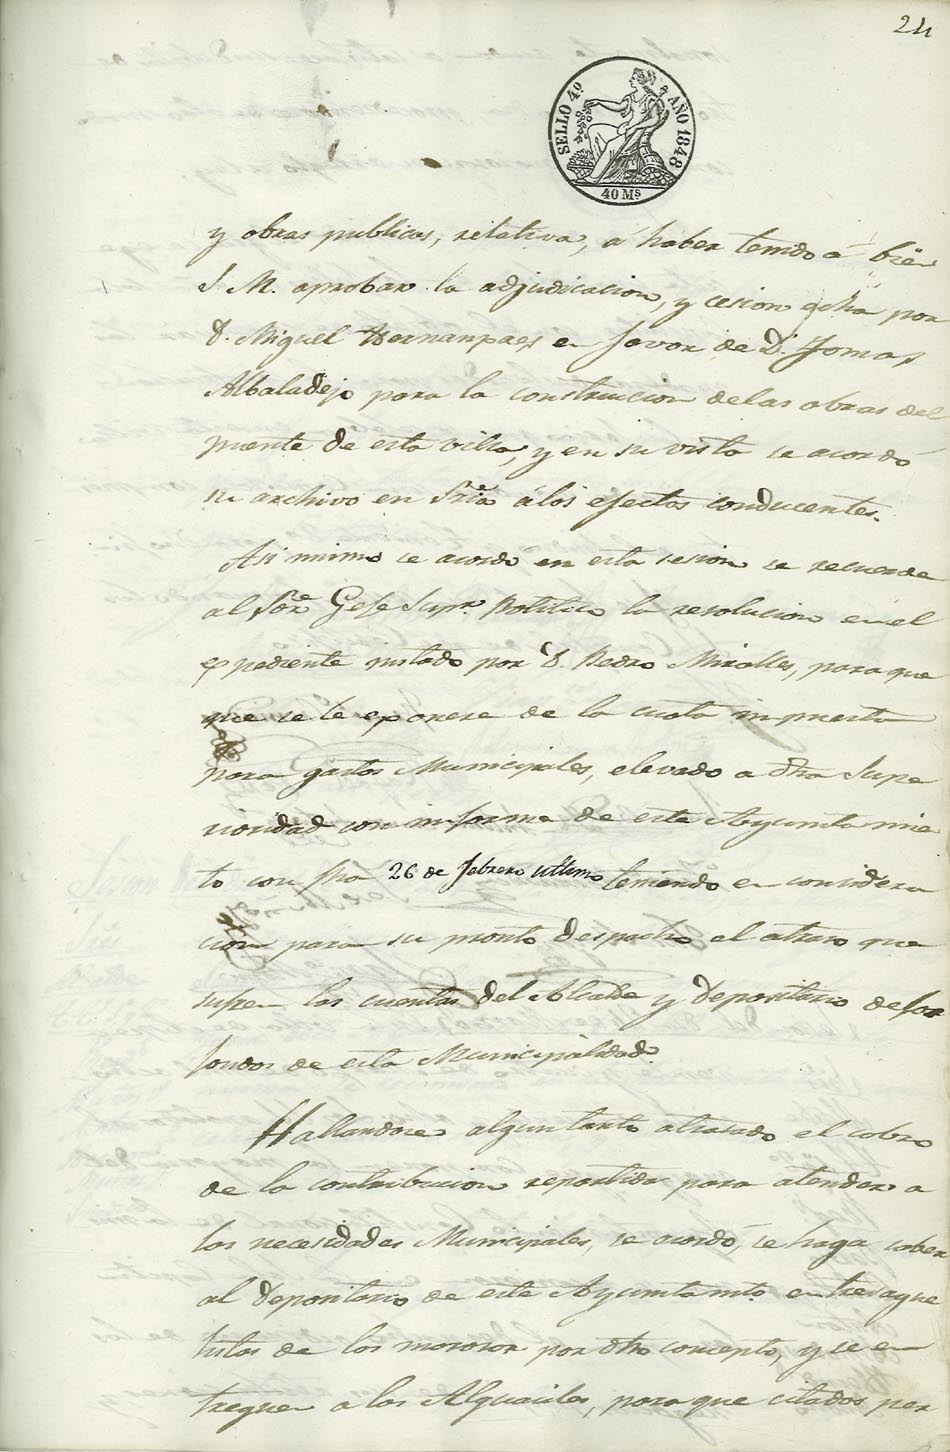 24
SELLO 4º AÑO 1848
40 Ms
y obras publicas, relativa, á haber tenido á bien
S. M. aprobar la adjudicacion, y cesion echa por
D. Miguel Hernanpaez en favor de D. Tomas
Albaladejo para la construccion delas obras del
puente de esta villa, y en su vista se acordó
su archivo en Sria á los efectos conducentes.
Asi mismo se acordó en esta sesion se recuerde
al Sor Gefe Supr. Politico la resolucion en el
expediente instado por D. Pedro Miralles, para que
que se le exonere de la cuota impuesta
para gastos Municipales, elevado a dha Supe
rioridad con informe de este Ayuntamie
to con fha 26 de febrero ultimo teniendo en considera
cion para su pronto despacho el atraso que
sufren las cuentas del Alcalde y Depositario de los
fondos de esta Municipalidad.
Hallandose algun tanto atrasado el cobro
de la contribucion repartida para atender a
las necesidades Municipales, se acordó, se haga saber
al Depositario de este Ayuntamto. entre vaque
tistas de los morosos por dho concepto, y se en
treguen a los Alguaciles, para que citados per